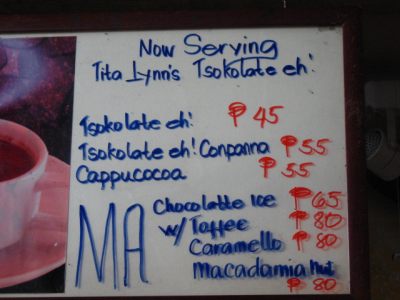 Now Serving
Tita Lynn's Tsokolate eh!
Tsokolate eh! ₱ 45
Tsokolate eh! Conpanna ₱ 55
Cappucocoa ₱ 55
MA
Chocolatte Ice ₱ 65
w/ Toffee ₱ 80
Caramello ₱ 80
Macadamia Nut
₱ 80